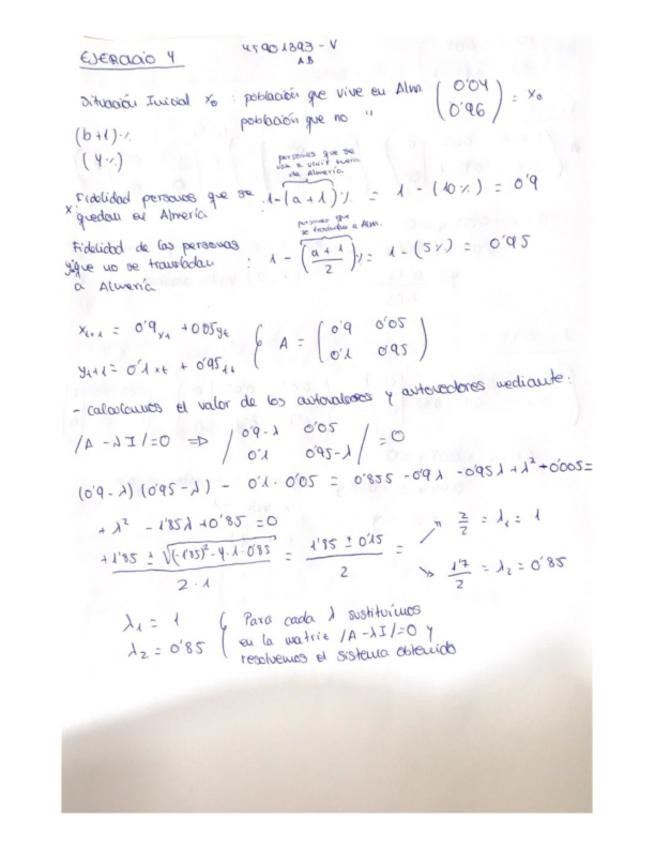 EJERCICIO 4
45901393-V
AB
Situación Inicial x₀ : población que vive en Alm. (0'04) = x₀
población que no " (0'96)
(b+1)%
(4%)
personas que se
van a vivir fuera
de Almería
x: Fidelidad personas que se : 1-(a+1)% = 1-(10%) = 0'9
quedan en Almería
personas que
se trasladan a Alm.
Fidelidad de las personas
y: que no se trasladan : 1-(a+1/2)% = 1-(5%) = 0'95
a Almería
xₜ₊₁ = 0'9xₜ + 0'05yₜ { A = (0'9 0'05)
yₜ₊₁ = 0'1xₜ + 0'95 (0'1 0'95)
- calculamos el valor de los autovalores y autovectores mediante:
/A - λI/=0 ⇒ /0'9-λ 0'05/ = 0
/0'1 0'95-λ/
(0'9-λ)(0'95-λ) - 0'1·0'05 = 0'855 - 0'9λ - 0'95λ + λ² + 0'005=
+λ² - 1'85λ + 0'85 = 0
+1'85 ± √(-1'85)² - 4·1·0'85 / 2·1 = 1'85 ± 0'15 / 2 =
2/2 = λ₁ = 1
1'7/2 = λ₂ = 0'85
λ₁ = 1 { Para cada λ sustituimos
λ₂ = 0'85 en la matriz /A-λI/=0 y
resolvemos el sistema obtenido